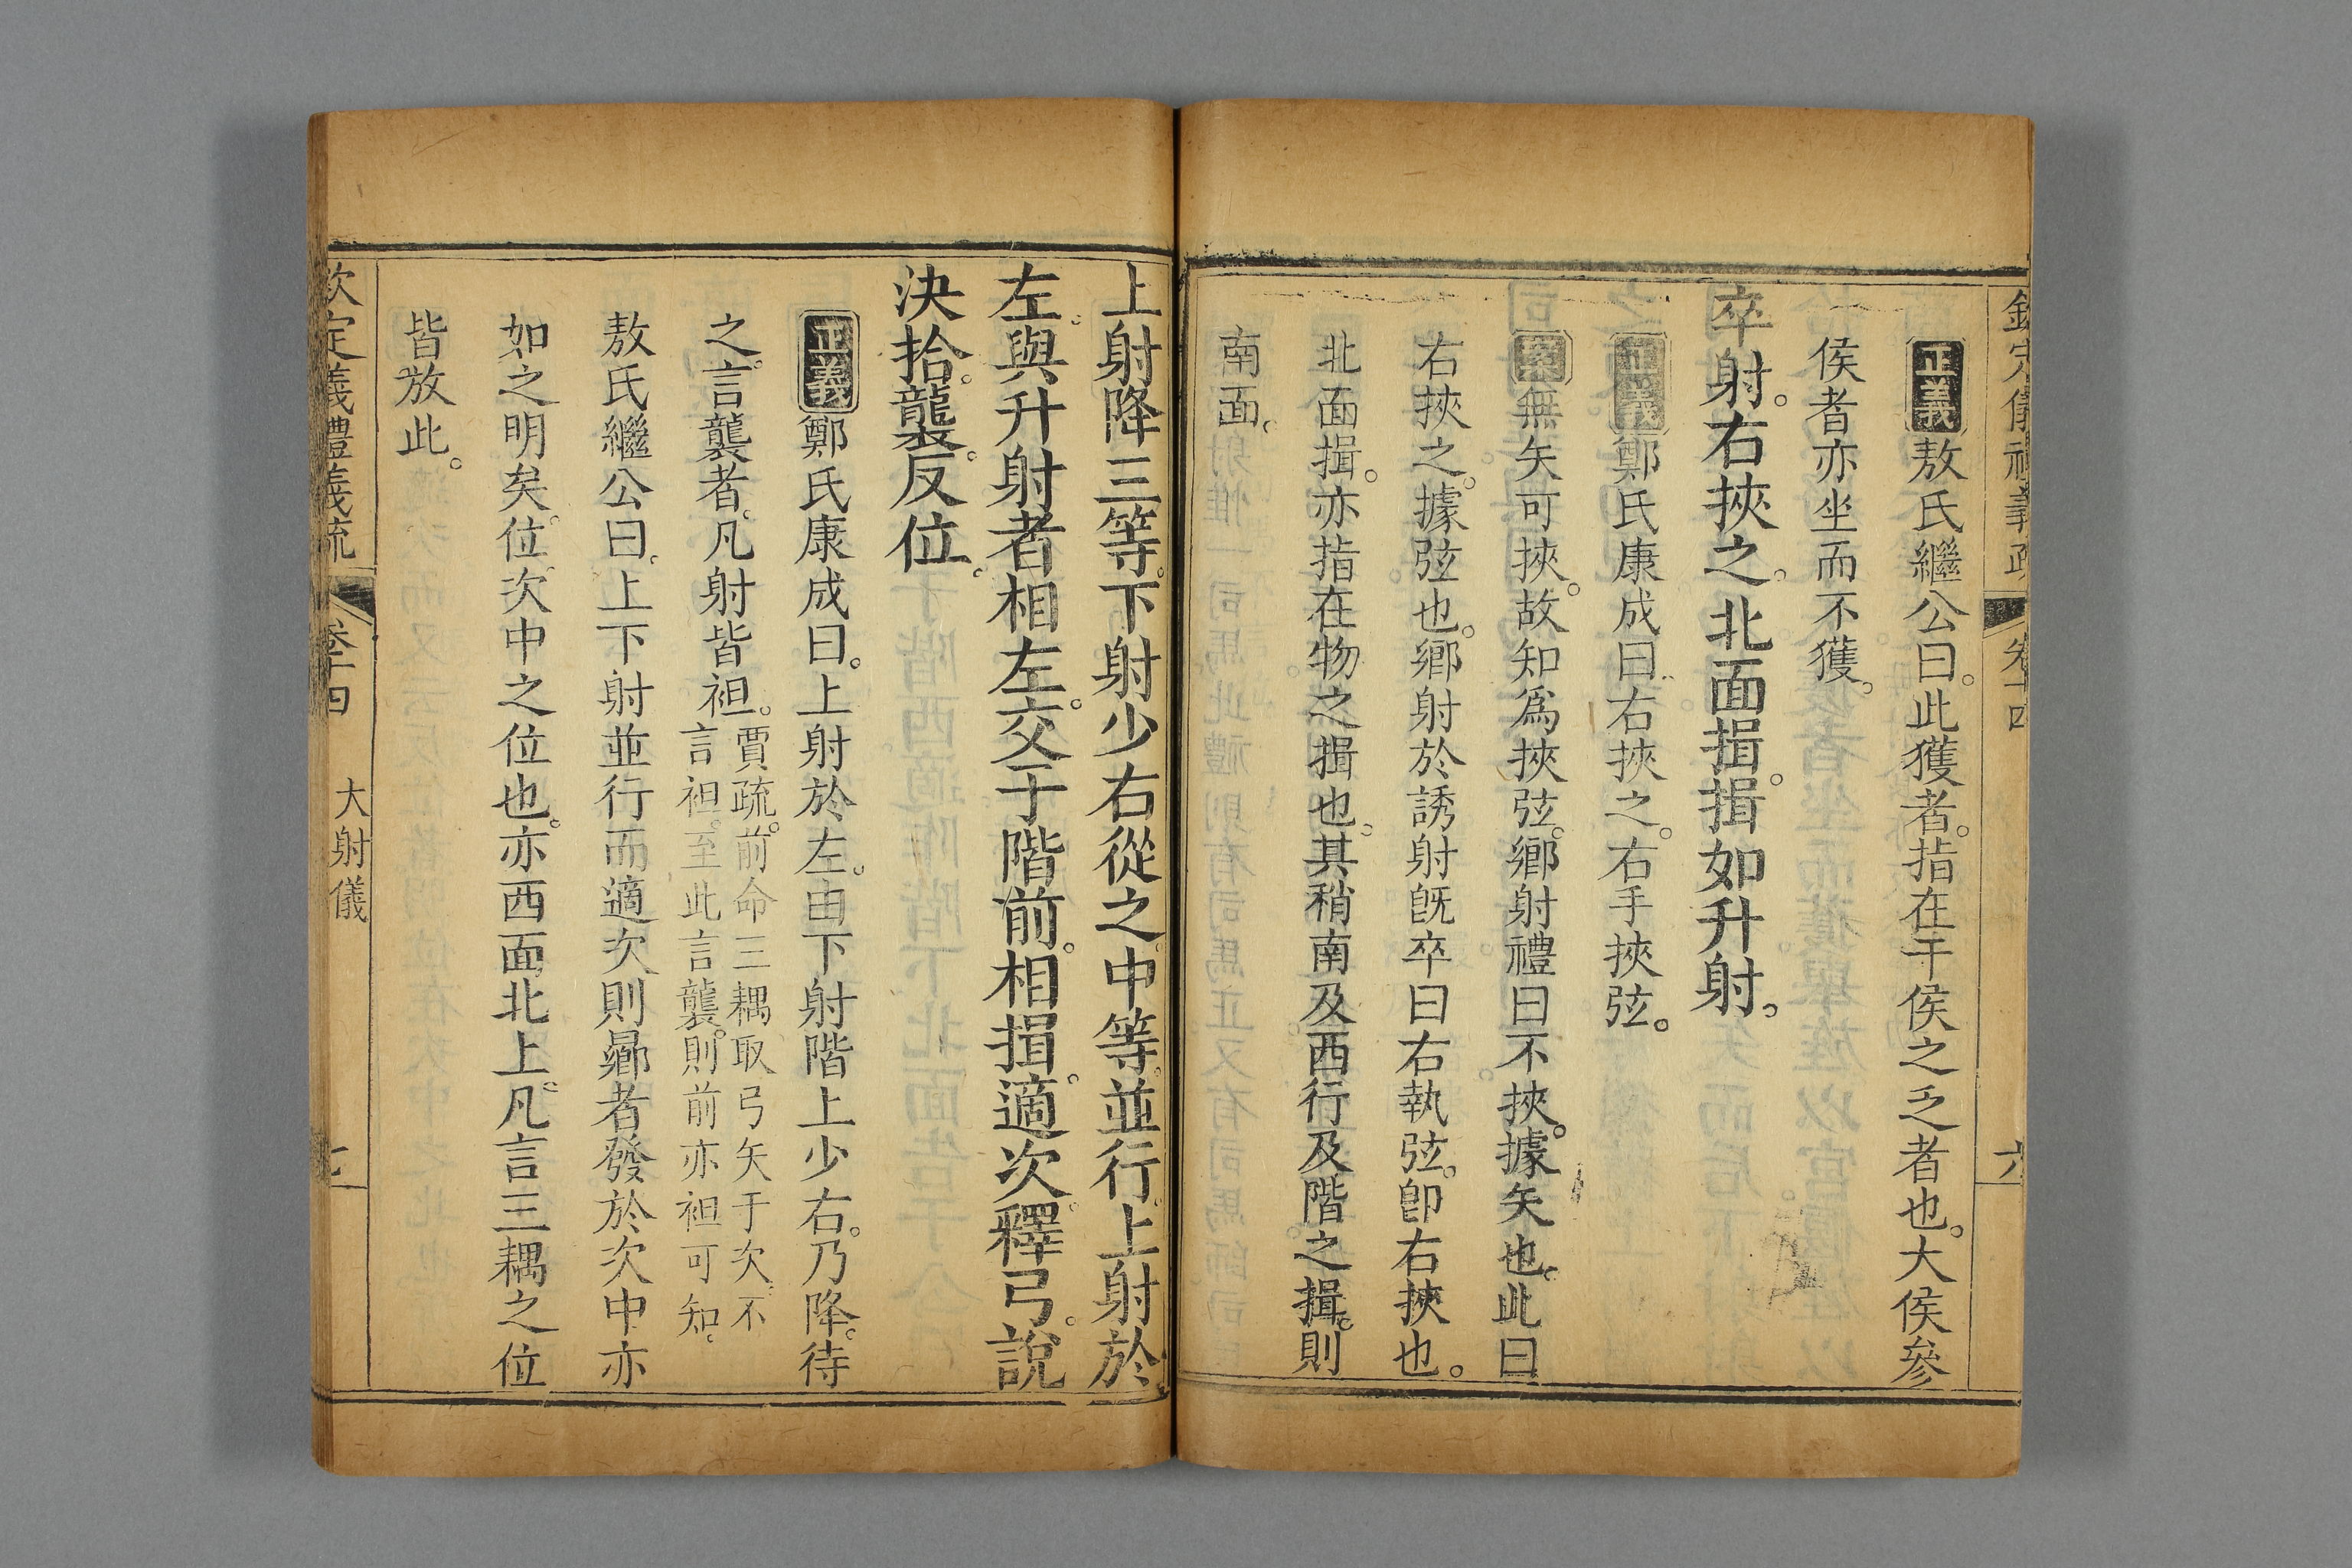 欽定儀禮義疏 卷十四 六
正義敖氏繼公曰。此獲者。指在干侯之乏者也。大侯參
侯者亦坐而不獲。
卒射。右挾之。北面揖。揖如升射。
正義鄭氏康成曰右挾之。右手挾弦。
案無矢可挾。故知爲挾弦。鄉射禮曰不挾。據矢也。此曰
右挾之。據弦也。鄉射於誘射旣卒曰右執弦。卽右挾也。
北面揖。亦指在物之揖也。其稍南及西行及階之揖。則
南面。
上射降三等。下射少右從之。中等。並行。上射於
左。與升射者相左。交于階前。相揖。適次。釋弓。說
決拾。襲。反位。
正義鄭氏康成曰。上射於左。由下射階上少右。乃降。待
之。言襲者。凡射皆袒。賈疏。前命三耦取弓矢于次。不
言袒。至此言襲。則前亦袒可知。
敖氏繼公曰。上下射並行而適次則曏者發於次中亦
如之明矣。位。次中之位也。亦西面北上。凡言三耦之位
皆放此。
欽定義禮義疏 卷十四 大射儀 七